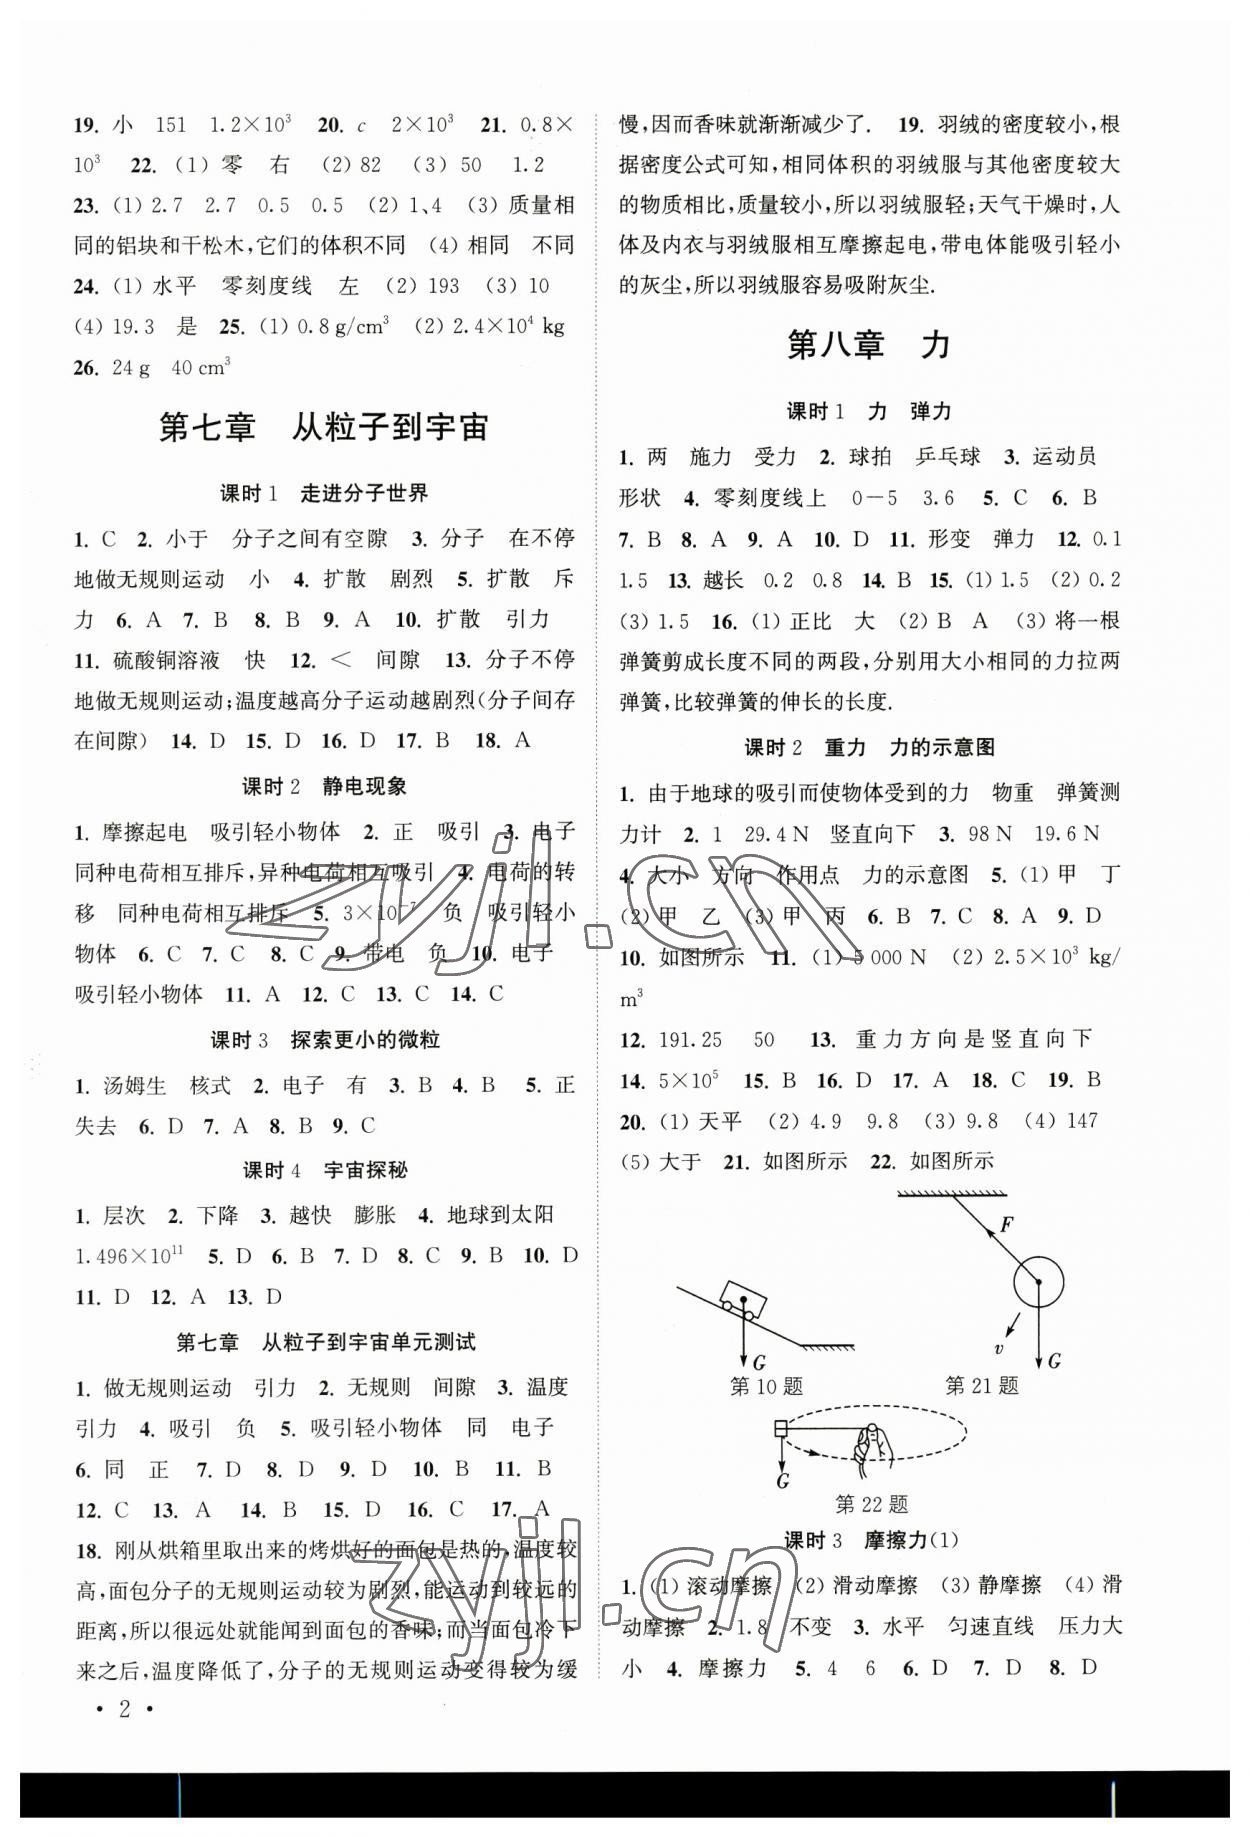 19. 小　151　1.2×10³　20. c　2×10³　21. 0.8×
10³　22. (1) 零　右　(2) 82　(3) 50　1.2
23. (1) 2.7　2.7　0.5　0.5　(2) 1、4　(3) 质量相
同的铝块和干松木,它们的体积不同　(4) 相同　不同
24. (1) 水平　零刻度线　左　(2) 193　(3) 10
(4) 19.3　是　25. (1) 0.8 g/cm³　(2) 2.4×10⁴ kg
26. 24 g　40 cm³
第七章　从粒子到宇宙
课时 1　走进分子世界
1. C　2. 小于　分子之间有空隙　3. 分子　在不停
地做无规则运动　小　4. 扩散　剧烈　5. 扩散　斥
力　6. A　7. B　8. B　9. A　10. 扩散　引力
11. 硫酸铜溶液　快　12. <　间隙　13. 分子不停
地做无规则运动;温度越高分子运动越剧烈(分子间存
在间隙)　14. D　15. D　16. D　17. B　18. A
课时 2　静电现象
1. 摩擦起电　吸引轻小物体　2. 正　吸引　3. 电子
同种电荷相互排斥,异种电荷相互吸引　4. 电荷的转
移　同种电荷相互排斥　5. 3×10⁻⁷　负　吸引轻小
物体　6. C　7. C　8. C　9. 带电　负　10. 电子
吸引轻小物体　11. A　12. C　13. C　14. C
课时 3　探索更小的微粒
1. 汤姆生　核式　2. 电子　有　3. B　4. B　5. 正
失去　6. D　7. A　8. B　9. C
课时 4　宇宙探秘
1. 层次　2. 下降　3. 越快　膨胀　4. 地球到太阳
1.496×10¹¹　5. D　6. B　7. D　8. C　9. B　10. D
11. D　12. A　13. D
第七章　从粒子到宇宙单元测试
1. 做无规则运动　引力　2. 无规则　间隙　3. 温度
引力　4. 吸引　负　5. 吸引轻小物体　同　电子
6. 同　正　7. D　8. D　9. D　10. B　11. B
12. C　13. A　14. B　15. D　16. C　17. A
18. 刚从烘箱里取出来的烤烘好的面包是热的,温度较
高,面包分子的无规则运动较为剧烈,能运动到较远的
距离,所以很远处就能闻到面包的香味;而当面包冷下
来之后,温度降低了,分子的无规则运动变得较为缓
• 2 •
慢,因而香味就渐渐减少了.　19. 羽绒的密度较小,根
据密度公式可知,相同体积的羽绒服与其他密度较大
的物质相比,质量较小,所以羽绒服轻;天气干燥时,人
体及内衣与羽绒服相互摩擦起电,带电体能吸引轻小
的灰尘,所以羽绒服容易吸附灰尘.
第八章　力
课时 1　力　弹力
1. 两　施力　受力　2. 球拍　乒乓球　3. 运动员
形状　4. 零刻度线上　0－5　3.6　5. C　6. B
7. B　8. A　9. A　10. D　11. 形变　弹力　12. 0.1
1.5　13. 越长　0.2　0.8　14. B　15. (1) 1.5　(2) 0.2
(3) 1.5　16. (1) 正比　大　(2) B　A　(3) 将一根
弹簧剪成长度不同的两段,分别用大小相同的力拉两
弹簧,比较弹簧的伸长的长度.
课时 2　重力　力的示意图
1. 由于地球的吸引而使物体受到的力　物重　弹簧测
力计　2. 1　29.4 N　竖直向下　3. 98 N　19.6 N
4. 大小　方向　作用点　力的示意图　5. (1) 甲　丁
(2) 甲　乙　(3) 甲　丙　6. B　7. C　8. A　9. D
10. 如图所示　11. (1) 5 000 N　(2) 2.5×10³ kg/
m³
12. 191.25　50　13. 重力方向是竖直向下
14. 5×10⁵　15. B　16. D　17. A　18. C　19. B
20. (1) 天平　(2) 4.9　9.8　(3) 9.8　(4) 147
(5) 大于　21. 如图所示　22. 如图所示
F
v
G
G
第 10 题
第 21 题
G
第 22 题
课时 3　摩擦力(1)
1. (1) 滚动摩擦　(2) 滑动摩擦　(3) 静摩擦　(4) 滑
动摩擦　2. 1.8　不变　3. 水平　匀速直线　压力大
小　4. 摩擦力　5. 4　6　6. D　7. D　8. D
zyjl.cn
zyjl.cn